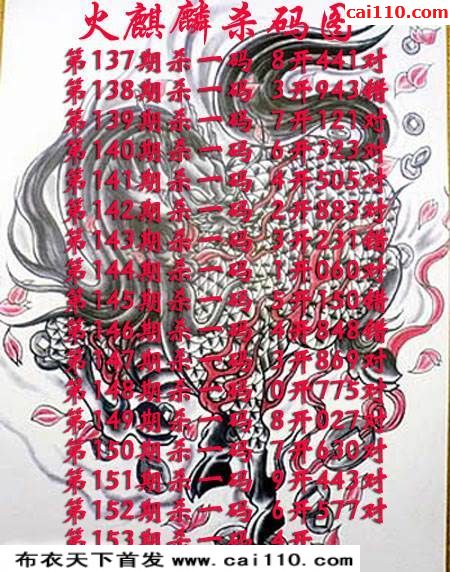 cai110.com
火麒麟杀码图
第137期杀一码 8开441对
第138期杀一码 3开943错
第139期杀一码 7开121对
第140期杀一码 6开323对
第141期杀一码 4开505对
第142期杀一码 2开883对
第143期杀一码 3开231错
第144期杀一码 1开060对
第145期杀一码 5开150错
第146期杀一码 4开848错
第147期杀一码 3开869对
第148期杀一码 0开775对
第149期杀一码 8开027对
第150期杀一码 7开630对
第151期杀一码 9开443对
第152期杀一码 6开577对
第153期杀一码 4开
布衣天下首发 www.cai110.com